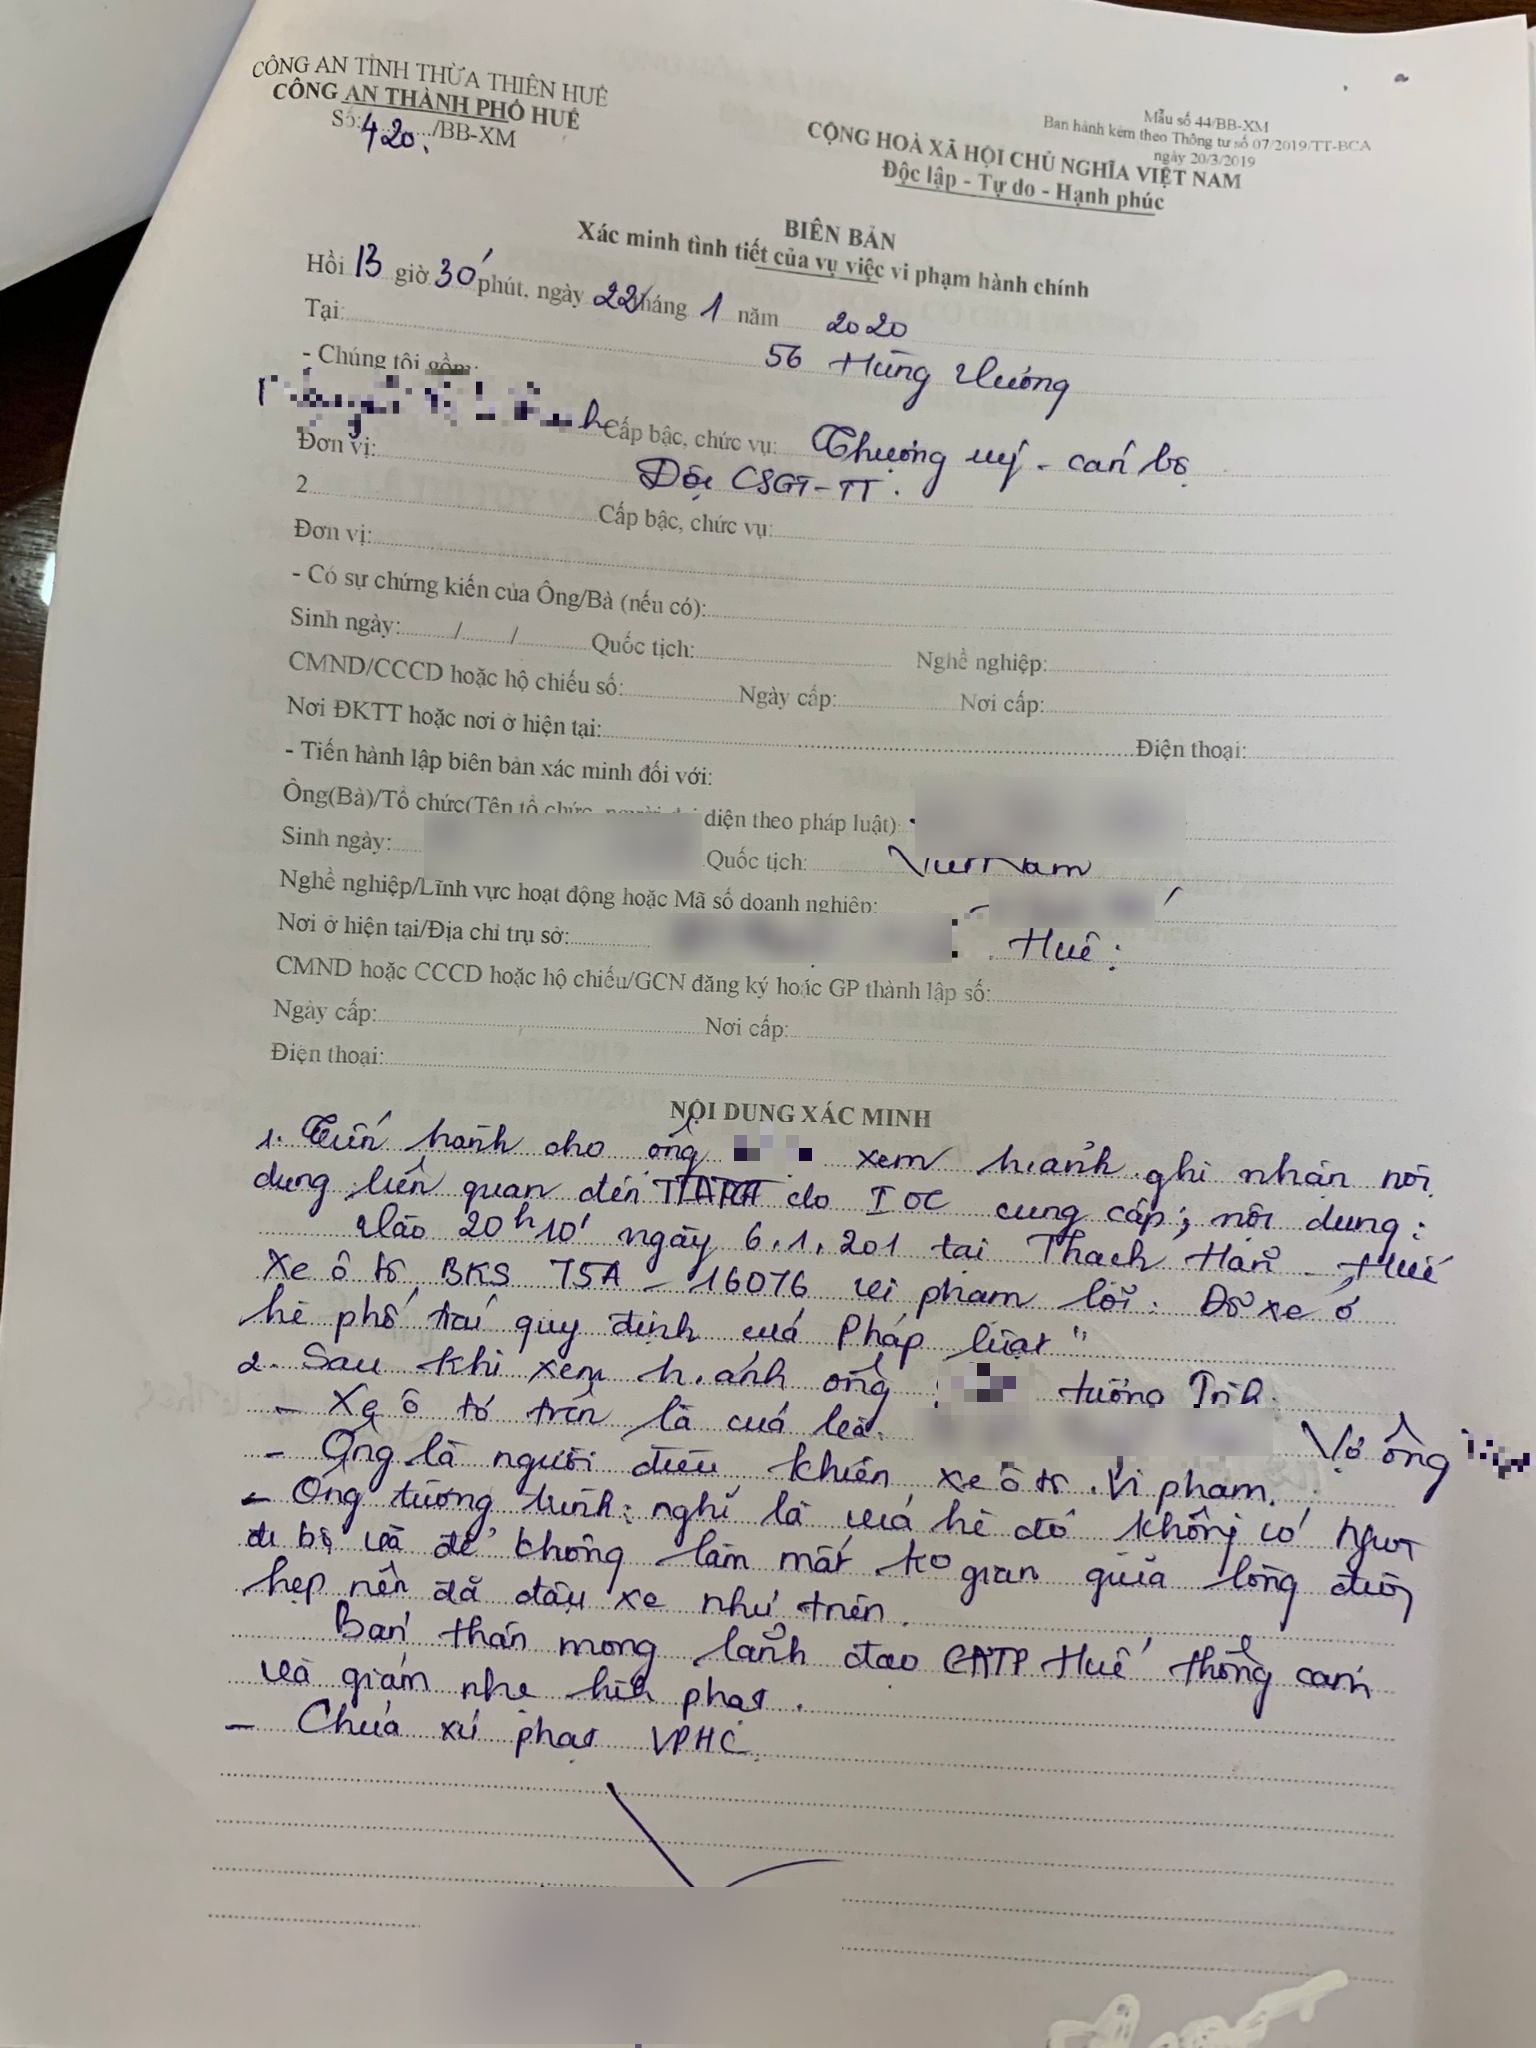 CÔNG AN TỈNH THỪA THIÊN HUẾ
CÔNG AN THÀNH PHỐ HUẾ
Số: 420./BB-XM
Mẫu số 44/BB-XM
Ban hành kèm theo Thông tư số 07/2019/TT-BCA
ngày 20/3/2019
CỘNG HOÀ XÃ HỘI CHỦ NGHĨA VIỆT NAM
Độc lập - Tự do - Hạnh phúc
BIÊN BẢN
Xác minh tình tiết của vụ việc vi phạm hành chính
Hồi 13 giờ 30 phút, ngày 22 tháng 1 năm 2020
Tại: 56 Hùng Vương
- Chúng tôi gồm:
Cấp bậc, chức vụ: Thượng uý - cán bộ
Đơn vị: Đội CSGT-TT.
2 Cấp bậc, chức vụ:
Đơn vị:
- Có sự chứng kiến của Ông/Bà (nếu có):
Sinh ngày: / / Quốc tịch: Nghề nghiệp:
CMND/CCCD hoặc hộ chiếu số: Ngày cấp: Nơi cấp:
Nơi ĐKTT hoặc nơi ở hiện tại: Điện thoại:
- Tiến hành lập biên bản xác minh đối với:
Ông(Bà)/Tổ chức(Tên tổ chức, diện theo pháp luật)
Sinh ngày: Quốc tịch: Việt Nam
Nghề nghiệp/Lĩnh vực hoạt động hoặc Mã số doanh nghiệp:
Nơi ở hiện tại/Địa chỉ trụ sở: Huế.
CMND hoặc CCCD hoặc hộ chiếu/GCN đăng ký hoặc GP thành lập số:
Ngày cấp: Nơi cấp:
Điện thoại:
NỘI DUNG XÁC MINH
1. Tiến hành cho ông xem h.ảnh ghi nhận nội
dung liên quan đến do IOC cung cấp; nội dung:
Vào 20h10' ngày 6.1.201 tại Thạch Hãn - Huế
Xe ô tô BKS 75A - 16076 vi phạm lỗi: Đỗ xe ở
hè phố trái quy định của Pháp luật"
2. Sau khi xem h.ảnh ông tường trình.
- Xe ô tô trên là của bà. Vợ ông
- Ông là người điều khiển xe ô tô vi phạm.
- Ông tường trình: nghĩ là vỉa hè đó không có người
đi bộ và để không làm mất ko gian giữa lòng đường
hẹp nên đã đậu xe như trên.
Bản thân mong lãnh đạo CATP Huế thông cảm
và giảm nhẹ hình phạt.
- Chưa xử phạt VPHC.